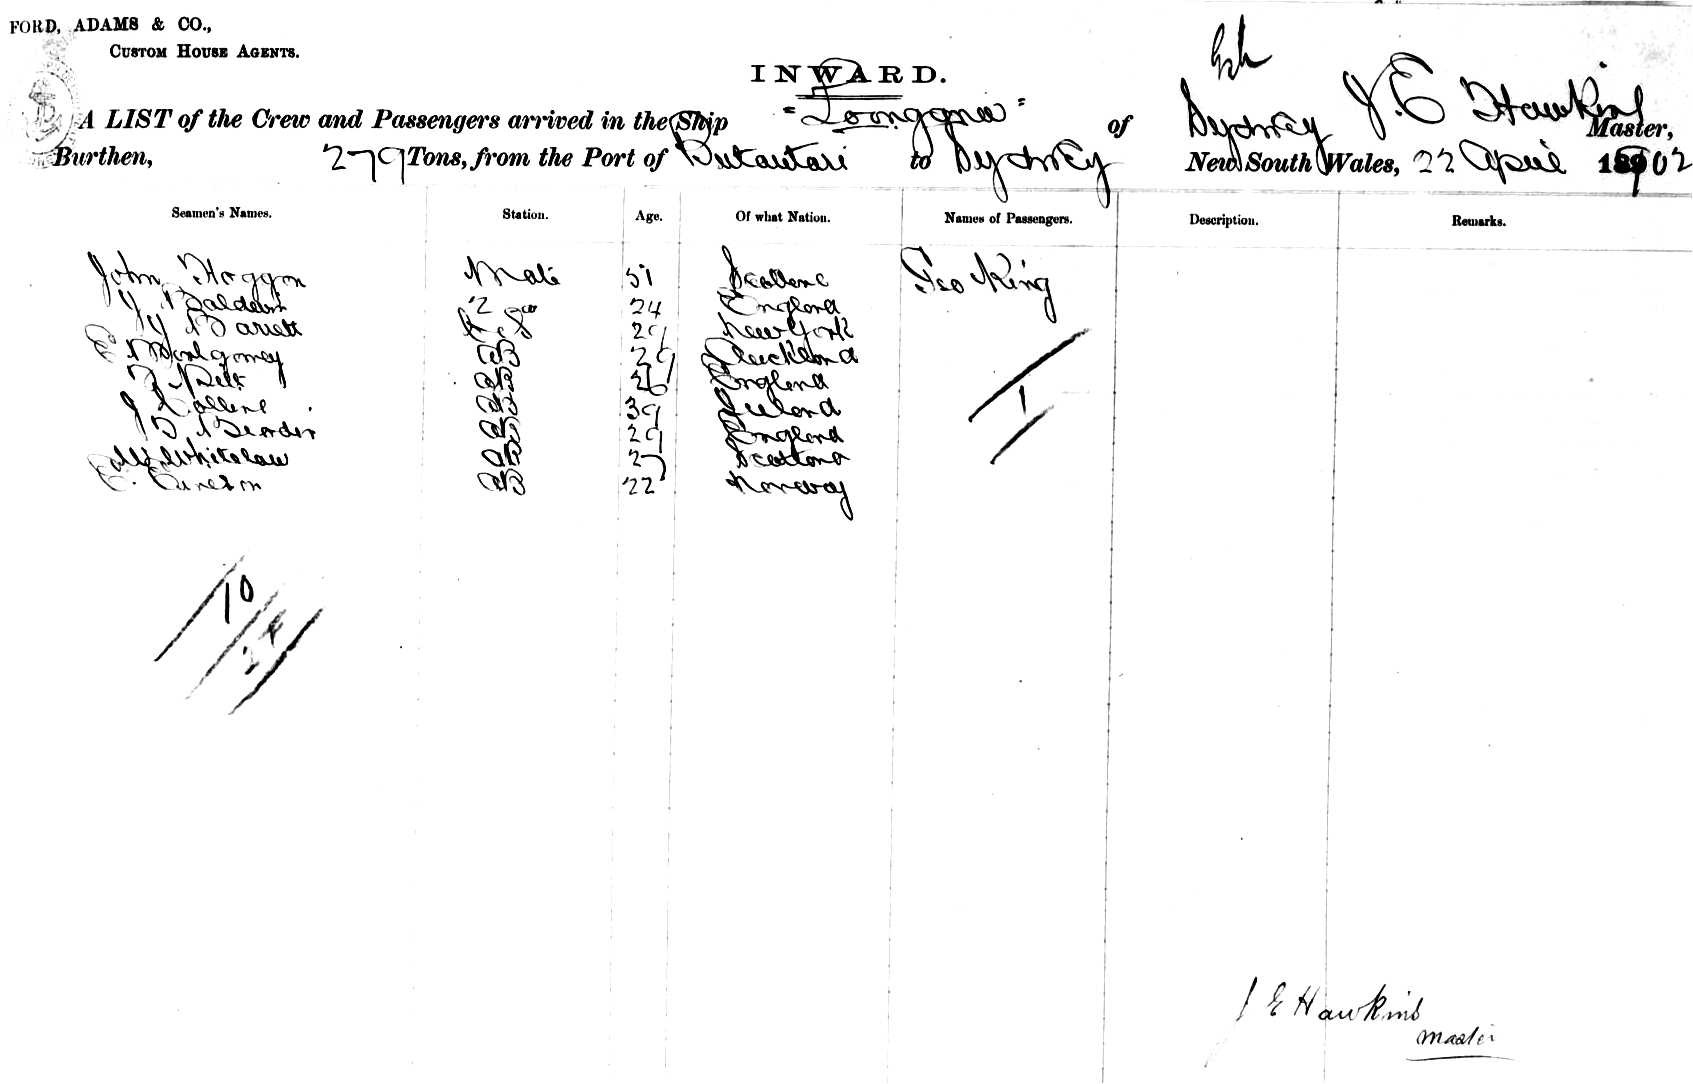 FORD, ADAMS & CO.,
CUSTOM HOUSE AGENTS.
INWARD.
A LIST of the Crew and Passengers arrived in the Ship "Loongana" of Sydney J. E Hawkins Master,
Burthen, 279 Tons, from the Port of Butaritari to Sydney New South Wales, 22 April 1902
Seamen's Names. Station. Age. Of what Nation. Names of Passengers. Description. Remarks.
John Mate 51 Geo King
J Baldwin 2 24 England
J Barrett 29 New York
E Montgomery AB 29 Auckland
AB 26 England
J AB 39
J B AB 29 England
Whitelaw AB 27 Scotland
C. AB 22 Norway
1
10
J E Hawkins
Master